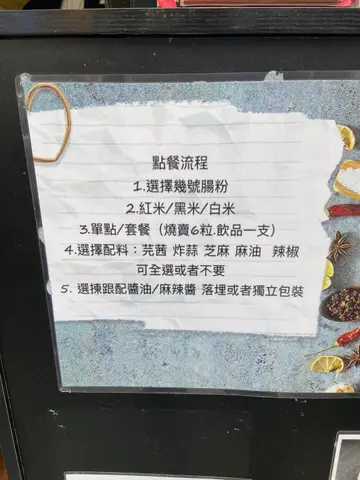 點餐流程
1.選擇幾號腸粉
2.紅米/黑米/白米
3.單點/套餐（燒賣6粒.飲品一支）
4.選擇配料：芫茜 炸蒜 芝麻 麻油 辣椒
可全選或者不要
5. 選揀跟配醬油/麻辣醬 落埋或者獨立包裝